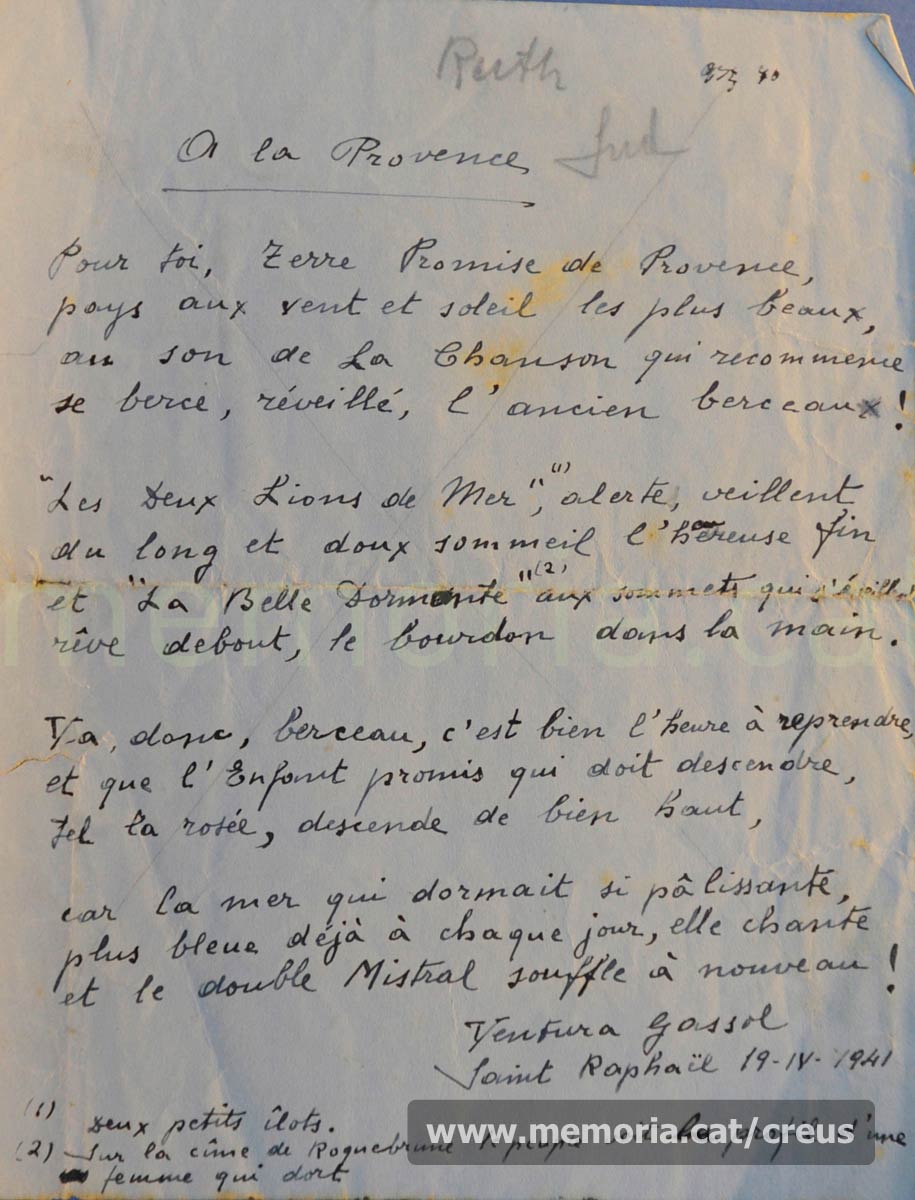 Ruth
A la Provence Sud
Pour toi, Terre Promise de Provence,
pays aux vent et soleil les plus beaux,
au son de La Chanson qui recommence
se berce, réveillé, l'ancien berceaux!
"Les Deux Lions de Mer",(1) alerte, veillent
du long et doux sommeil l'heureuse fin
et "La Belle Dormente"(2) aux sommets qui s'éveillent
rêve debout, le bourdon dans la main.
Va, donc, berceau, c'est bien l'heure à reprendre,
et que l'Enfant promis qui doit descendre,
tel la rosée, descende de bien haut,
car la mer qui dormait si pâlissante,
plus bleue déjà à chaque jour, elle chante
et le double Mistral souffle à nouveau!
Ventura Gassol
Saint Raphaël 19-IV-1941
(1) Deux petits îlots.
(2) Sur la cîme de Roquebrune d'une
femme qui dort
www.memoria.cat/creus
memoria.cat